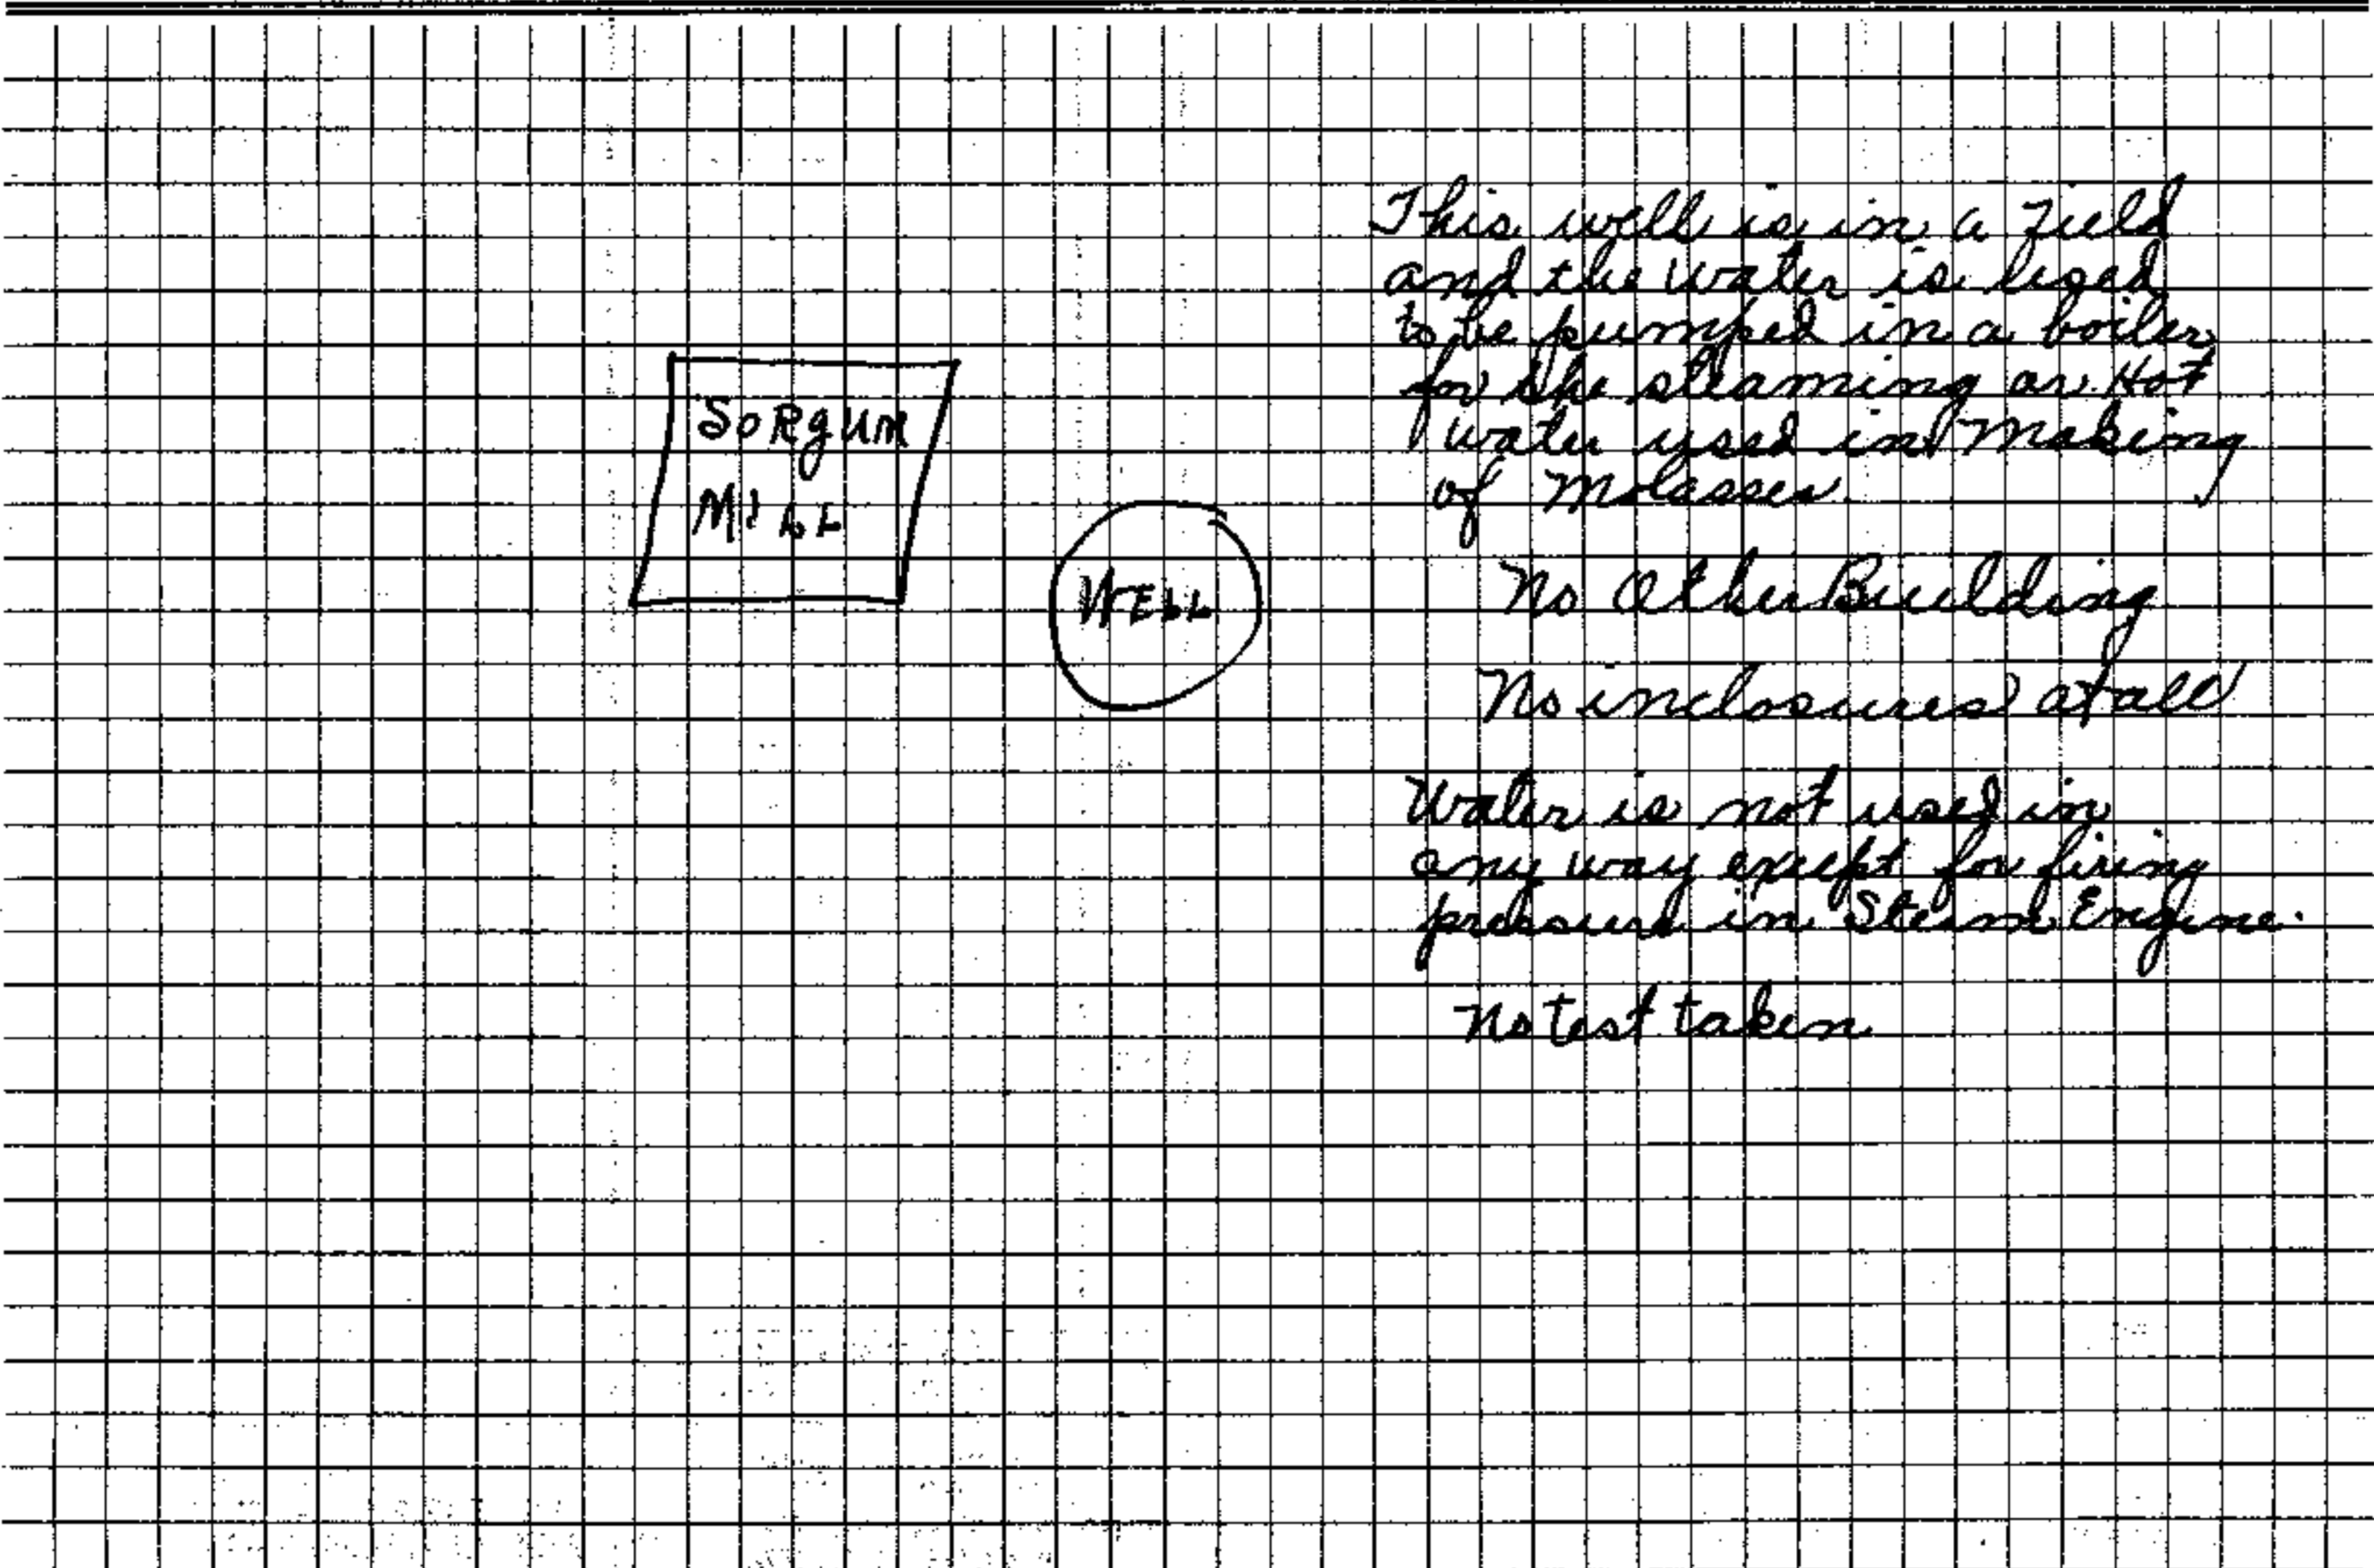 SoRgUM
MILL
WELL
This well is in a field
and the water is used
to be pumped in a boiler
for the steaming or Hot
water used in Making
of Molasses.
No Other Building
No inclosures at all
Water is not used in
any way except for firing
pressure in Steam Engine.
No test taken